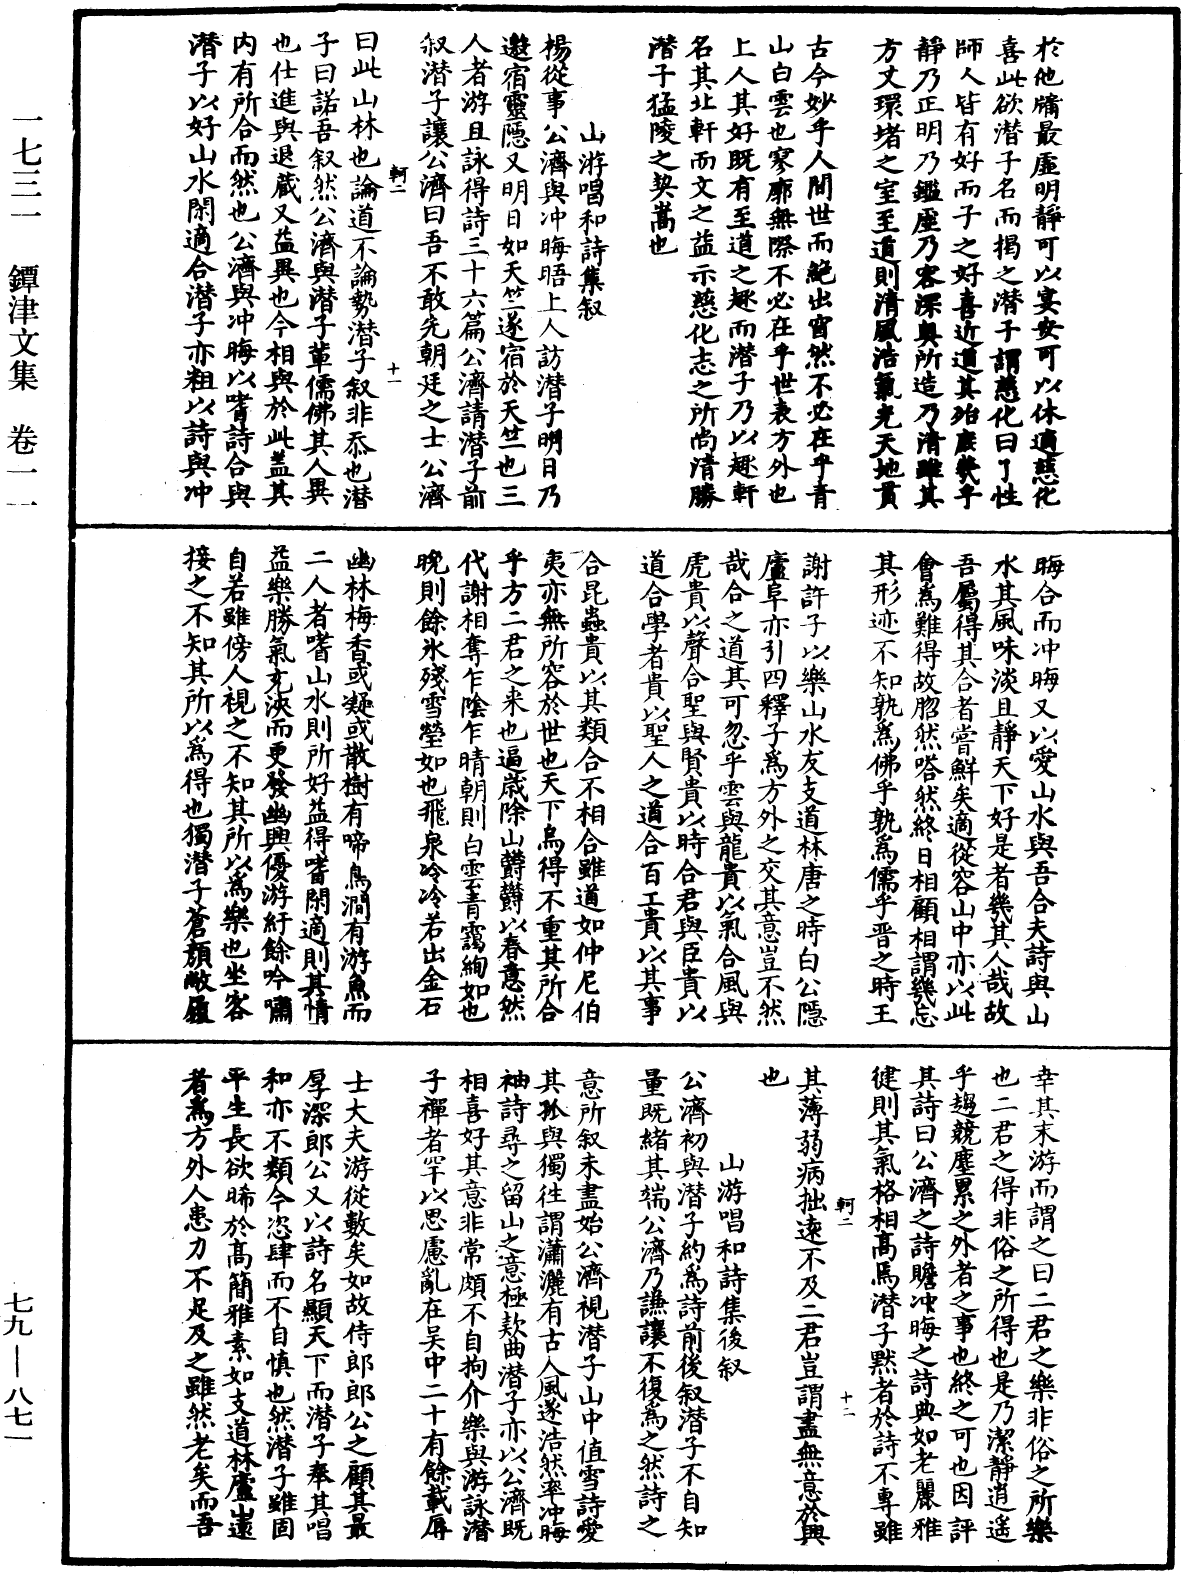 一七三一　鐔津文集　卷一一
七九—八七一
於他牖最虛明靜可以宴安可以休適慈化
喜此欲潛子名而揭之潛子謂慈化曰了性
師人皆有好而子之好喜近道其殆庶幾乎
靜乃正明乃鑑虛乃容深奧所造乃清雖其
方丈環堵之室至道則清風浩氣充天地貫
古今妙乎人間世而絕出窅然不必在乎青
山白雲也寥廓無際不必在乎世表方外也
上人其好既有至道之趣而潛子乃以趣軒
名其北軒而文之益示慈化志之所尚清勝
潛子猛陵之契嵩也
山游唱和詩集叙
楊從事公濟與冲晦晤上人訪潛子明日乃
邀宿靈隱又明日如天竺遂宿於天竺也三
人者游且詠得詩三十六篇公濟請潛子前
叙潛子讓公濟曰吾不敢先朝廷之士公濟
軻二　十一
曰此山林也論道不論勢潛子叙非忝也潛
子曰諾吾叙然公濟與潛子輩儒佛其人異
也仕進與退藏又益異也今相與於此蓋其
内有所合而然也公濟與冲晦以嗜詩合與
潛子以好山水閑適合潛子亦粗以詩與冲
晦合而冲晦又以愛山水與吾合夫詩與山
水其風味淡且靜天下好是者幾其人哉故
吾屬得其合者嘗鮮矣適從容山中亦以此
會爲難得故脗然嗒然終日相顧相謂幾忘
其形迹不知孰爲佛乎孰爲儒乎晋之時王
謝許子以樂山水友支道林唐之時白公隱
廬阜亦引四釋子爲方外之交其意豈不然
哉合之道其可忽乎雲與龍貴以氣合風與
虎貴以聲合聖與賢貴以時合君與臣貴以
道合學者貴以聖人之道合百工貴以其事
合昆蟲貴以其類合不相合雖道如仲尼伯
夷亦無所容於世也天下烏得不重其所合
乎方二君之来也逼歲除山欝欝以春意然
代謝相奪乍陰乍晴朝則白雲青靄絢如也
晚則餘氷殘雪瑩如也飛泉泠泠若出金石
幽林梅香或凝或散樹有啼鳥澗有游魚而
二人者嗜山水則所好益得嗜閑適則其情
益樂勝氣充浹而更發幽興優游紆餘吟嘯
自若雖傍人視之不知其所以爲樂也坐客
接之不知其所以爲得也獨潛子蒼顏敝履
幸其末游而謂之曰二君之樂非俗之所樂
也二君之得非俗之所得也是乃潔靜逍遥
乎趨競塵累之外者之事也終之可也因評
其詩曰公濟之詩贍冲晦之詩典如老麗雅
健則其氣格相高焉潛子默者於詩不專雖
軻二　十二
其薄弱病拙遠不及二君豈謂盡無意於興
也
山游唱和詩集後叙
公濟初與潛子約爲詩前後叙潛子不自知
量既緒其端公濟乃謙讓不復爲之然詩之
意所叙未盡始公濟視潛子山中值雪詩愛
其孤與獨徃謂瀟灑有古人風遂浩然率冲晦
袖詩尋之留山之意極欵曲潛子亦以公濟既
相喜好其意非常頗不自拘介樂與游詠潛
子禪者罕以思慮亂在吴中二十有餘載辱
士大夫游從數矣如故侍郎郎公之顧其最
厚深郎公又以詩名顯天下而潛子奉其唱
和亦不類今恣肆而不自慎也然潛子雖固
平生長欲晞於高簡雅素如支道林廬山遠
者爲方外人患力不足及之雖然老矣而吾